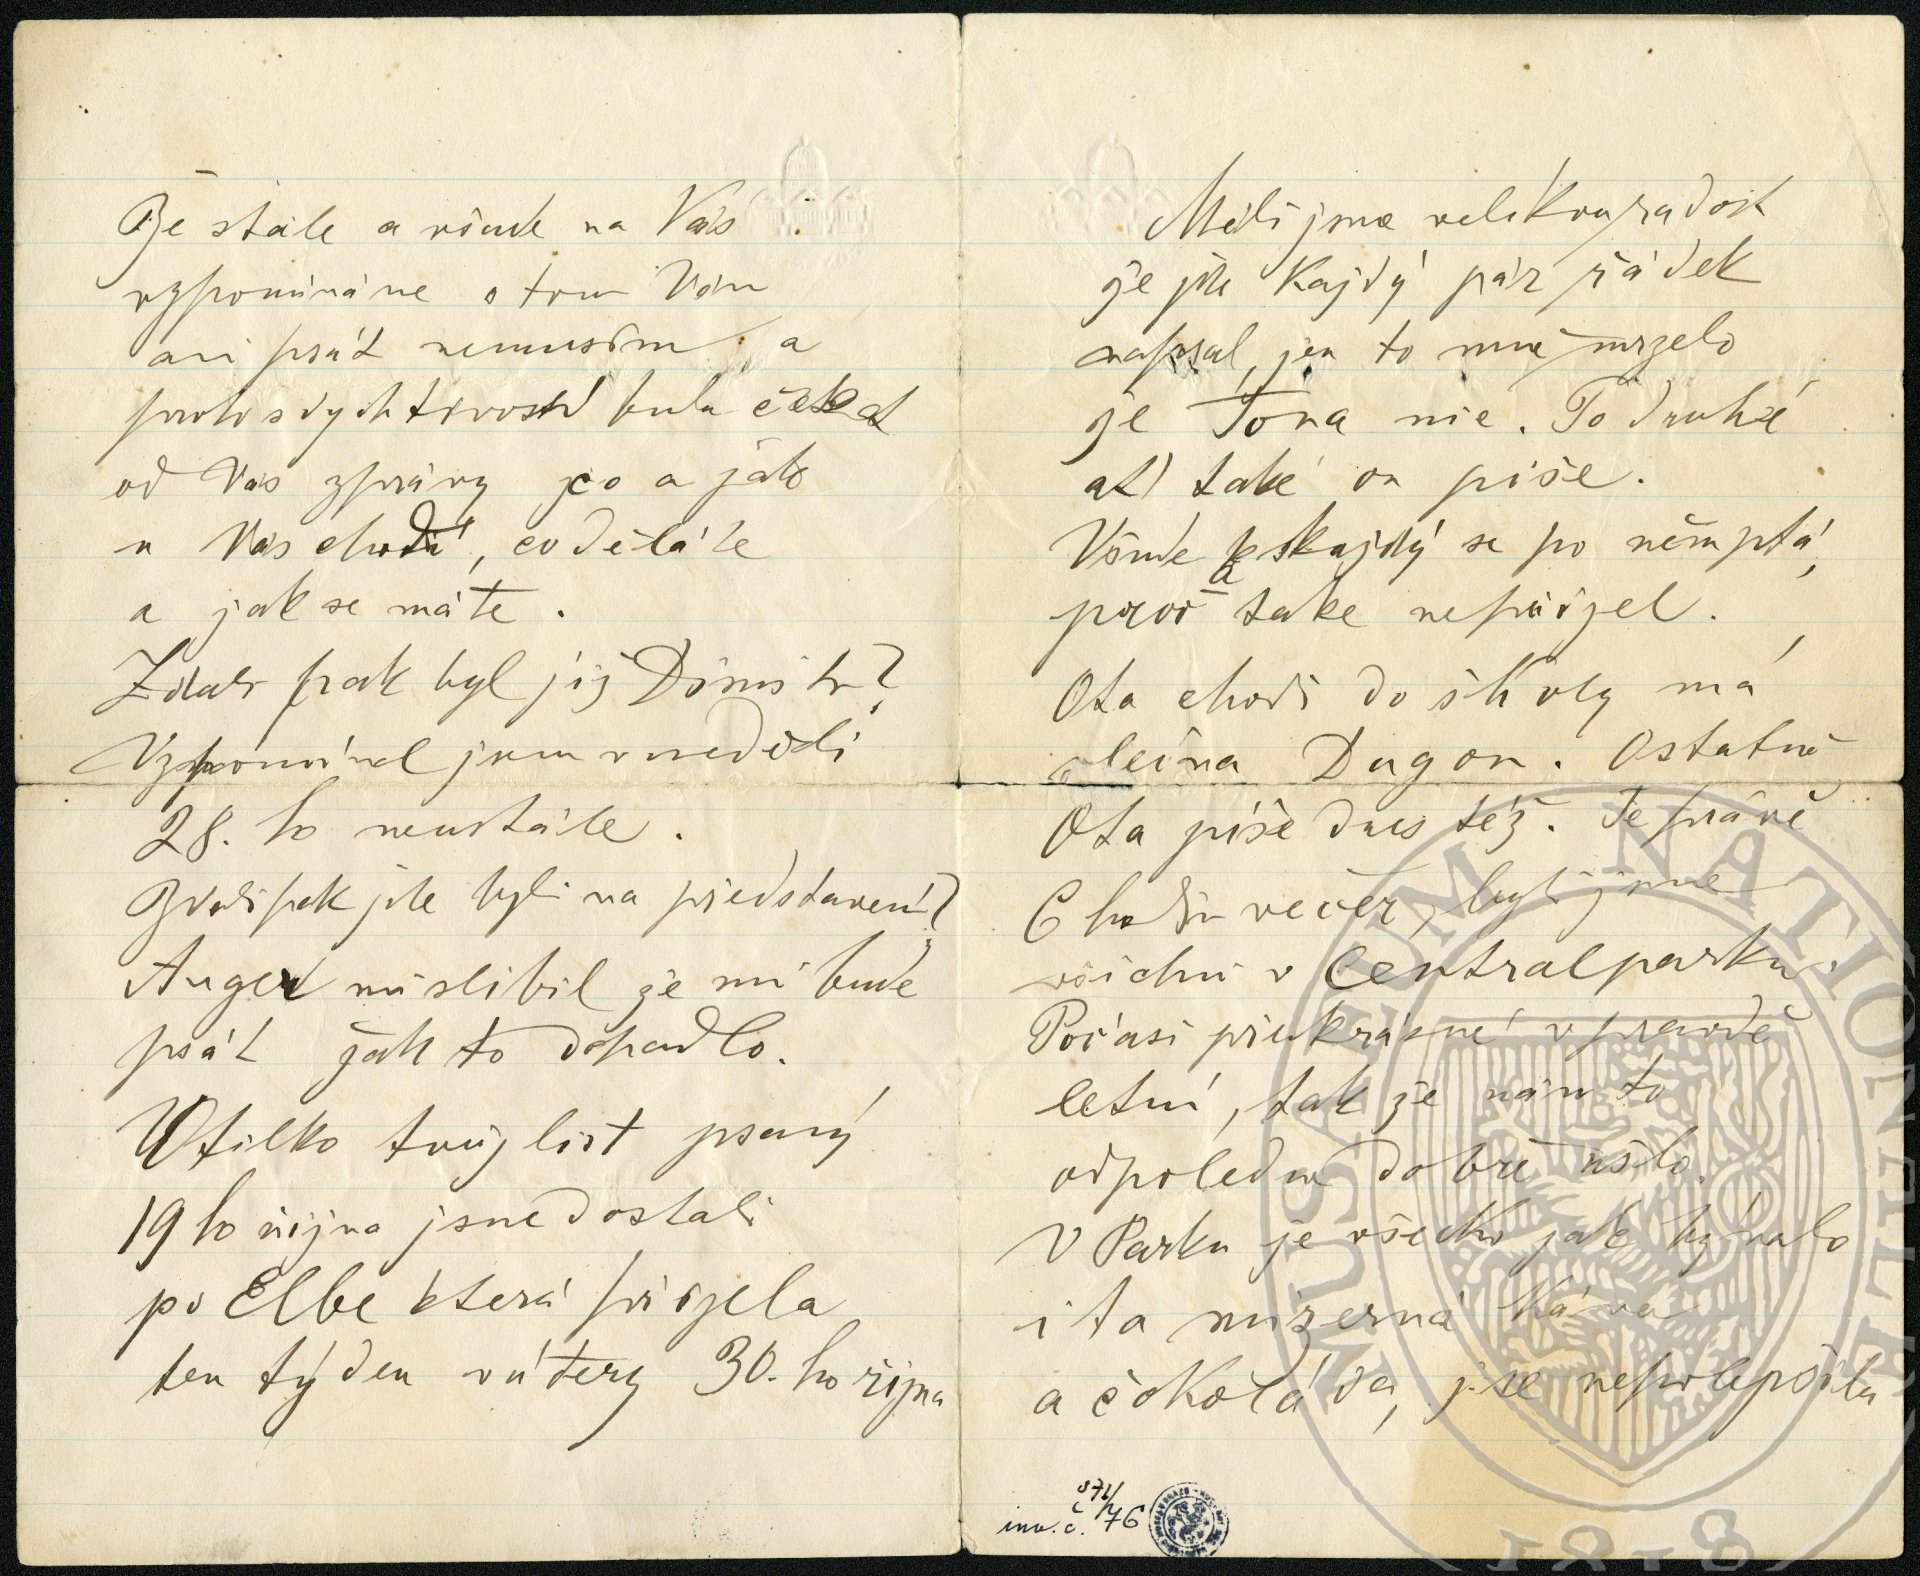 Že stále a všude na Vás
vzpomínáme o tom Vám
ani psát nemusím a
proto s dychtivostí budu čekat
od Vás zprávy co a jak
u Vás chodí, co děláte
a jak se máte.
Zdali pak byl již Dimitr?
Vzpomínal jsem v neděli
28. ho neustále.
Zdali pak jste byli na představení?
Anger mi slíbil že mi bude
psát jak to dopadlo.
Otilko tvůj list psaný
19 ho října jsme dostali
po Elbe která přijela
ten týden v úterý 30. ho října
Měli jsme velikou radost
že jste Každý pár řádek
napsal, jen to mne mrzelo
že Tona nic. Po druhé
ať také on píše.
Všude každý se po něm ptá,
proč také nepřijel.
Ota chodí do školy má
Dugon. Ostatně
Ota píše dnes též. Je právě
6 hodin večer, byli jsme
všichni v Centralparku.
Počasí překrásné v pravdě
letní, tak že nám to
odpoledne dobře ušlo.
V Parku je všecko jak bývalo
i ta mizerná káva
a čokoláda, se nepolepšila
inv. č. 76
MUSEUM NATIONALE
1818